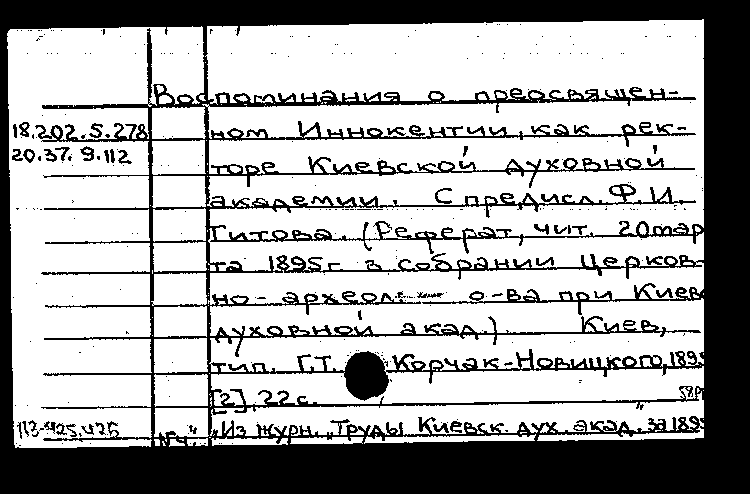 Воспоминания о преосвящен-
18.202.5.278 ном Иннокентии, как рек-
20.37.9.112 торе Киевской духовной
академии. С предисл. Ф. И.
Титова. (Реферат, чит. 20 мар
та 1895 г. в собрании Церков-
но-археол. о-ва при Киев
духовной акад.) Киев,
тип. Г.Т. Корчак-Новицкого, 1895
[2], 22 с.
№4. "Из журн. „Труды Киевск. дух. акад." за 1895